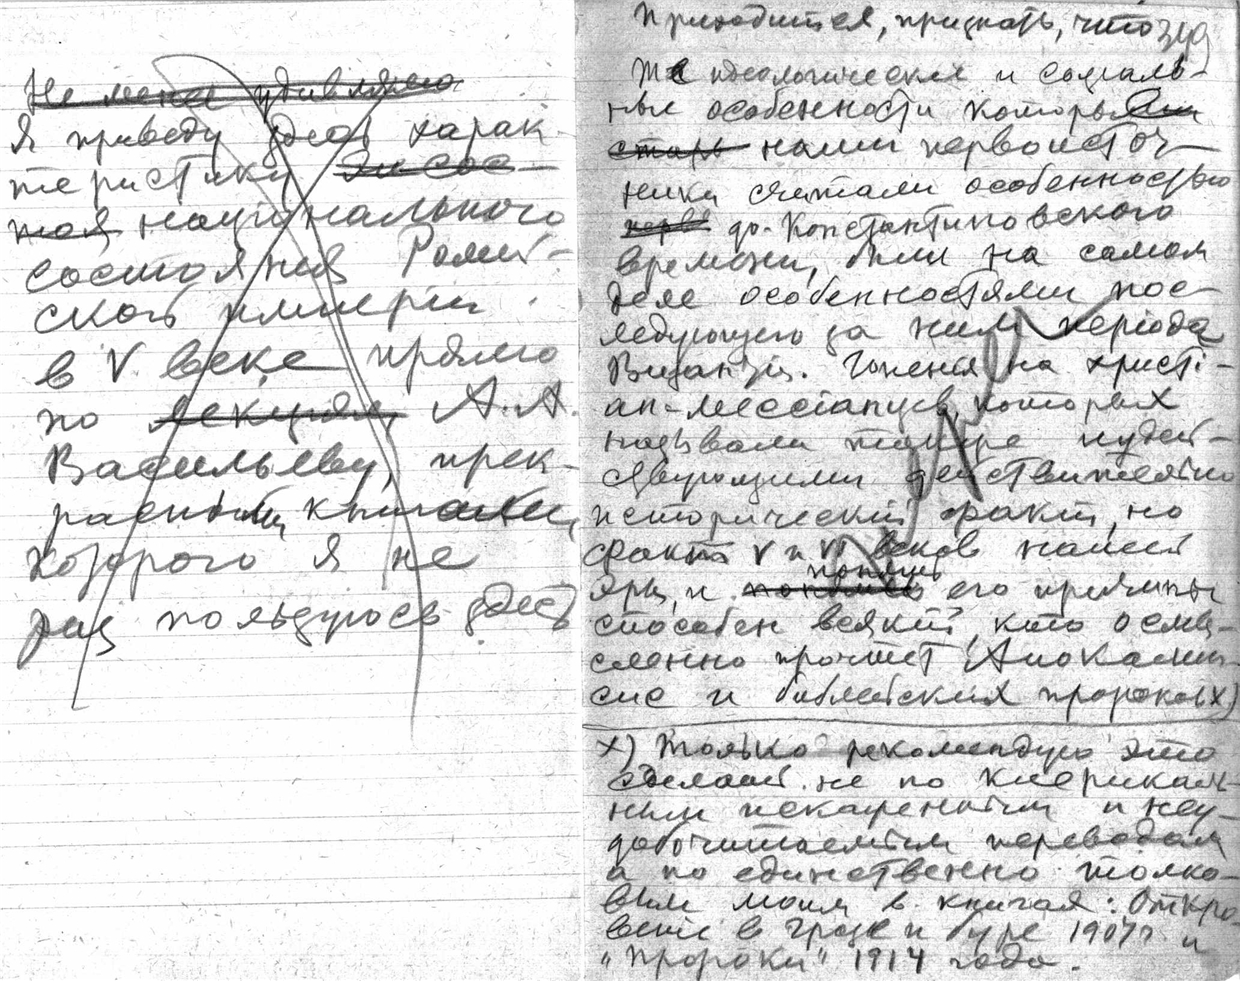 Не менее удивляемо
Я приведу здесь харак
теристику
национального
состояния Ромей-
ской империи
в V веке прямо
по лекциям А.А.
Васильеву, прек-
расными книгами
которого я не
раз пользуюсь здесь
Приходится, признать, что 319
Те идеологические и социаль-
ные особенности которые
наши первоисточ-
ники считали особенностью
до-Константиновского
времени, были на самом
деле особенностями пос-
ледующего за ним періода
Византіи. Гоненія на христі-
ан-мессіанцев, которых
называли также иудей-
ствующими действительно
исторический факт, но
факт V и VI веков нашей
эры, и понять его причины
способен всякий, кто осмы-
сленно прочтет Апокалип-
сис и библейских пророков х)
х) Только рекомендую это
сделать не по клерикаль-
ным искаженным и неу-
добочитаемым переводам
а по единственно толко-
вым моим в книгах: Откро-
вение в грозе и буре 1907 г и
"Пророки" 1914 года.